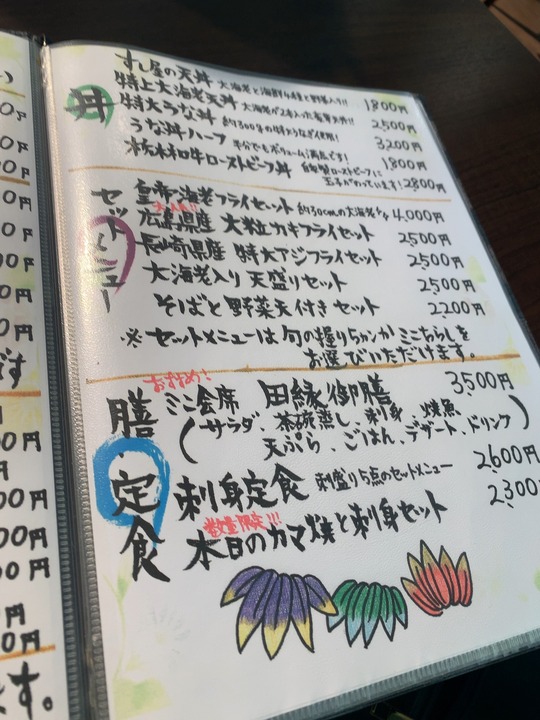 丼
すし屋の天丼 大海老と海鮮4種と野菜入り!! 1800円
特上大海老天丼 大海老が2本入った豪華天丼!! 2500円
特大うな丼 約300gの特大うなぎ使用! 3200円
うな丼ハーフ 半分でもボリューム満点です! 1800円
栃木和牛ローストビーフ丼 自家製ローストビーフに
玉子がのっています! 2800円
セットメニュー
皇帝海老フライセット 約30cmの大海老 4,000円
大人気!!
広島県産 大粒カキフライセット 2500円
長崎県産 特大アジフライセット 2500円
大海老入り 天盛りセット 2500円
そばと野菜天付きセット 2200円
※セットメニューは旬の握り5カンかミニちらしを
お選びいただけます。
膳・定食
おすすめ!
ミニ会席 田縁御膳 3,500円
(サラダ、茶碗蒸し、刺身、焼魚、
天ぷら、ごはん、デザート、ドリンク)
刺身定食 刺盛り5点のセットメニュー 2600円
数量限定!!!
本日のカマ焼と刺身セット 2300円